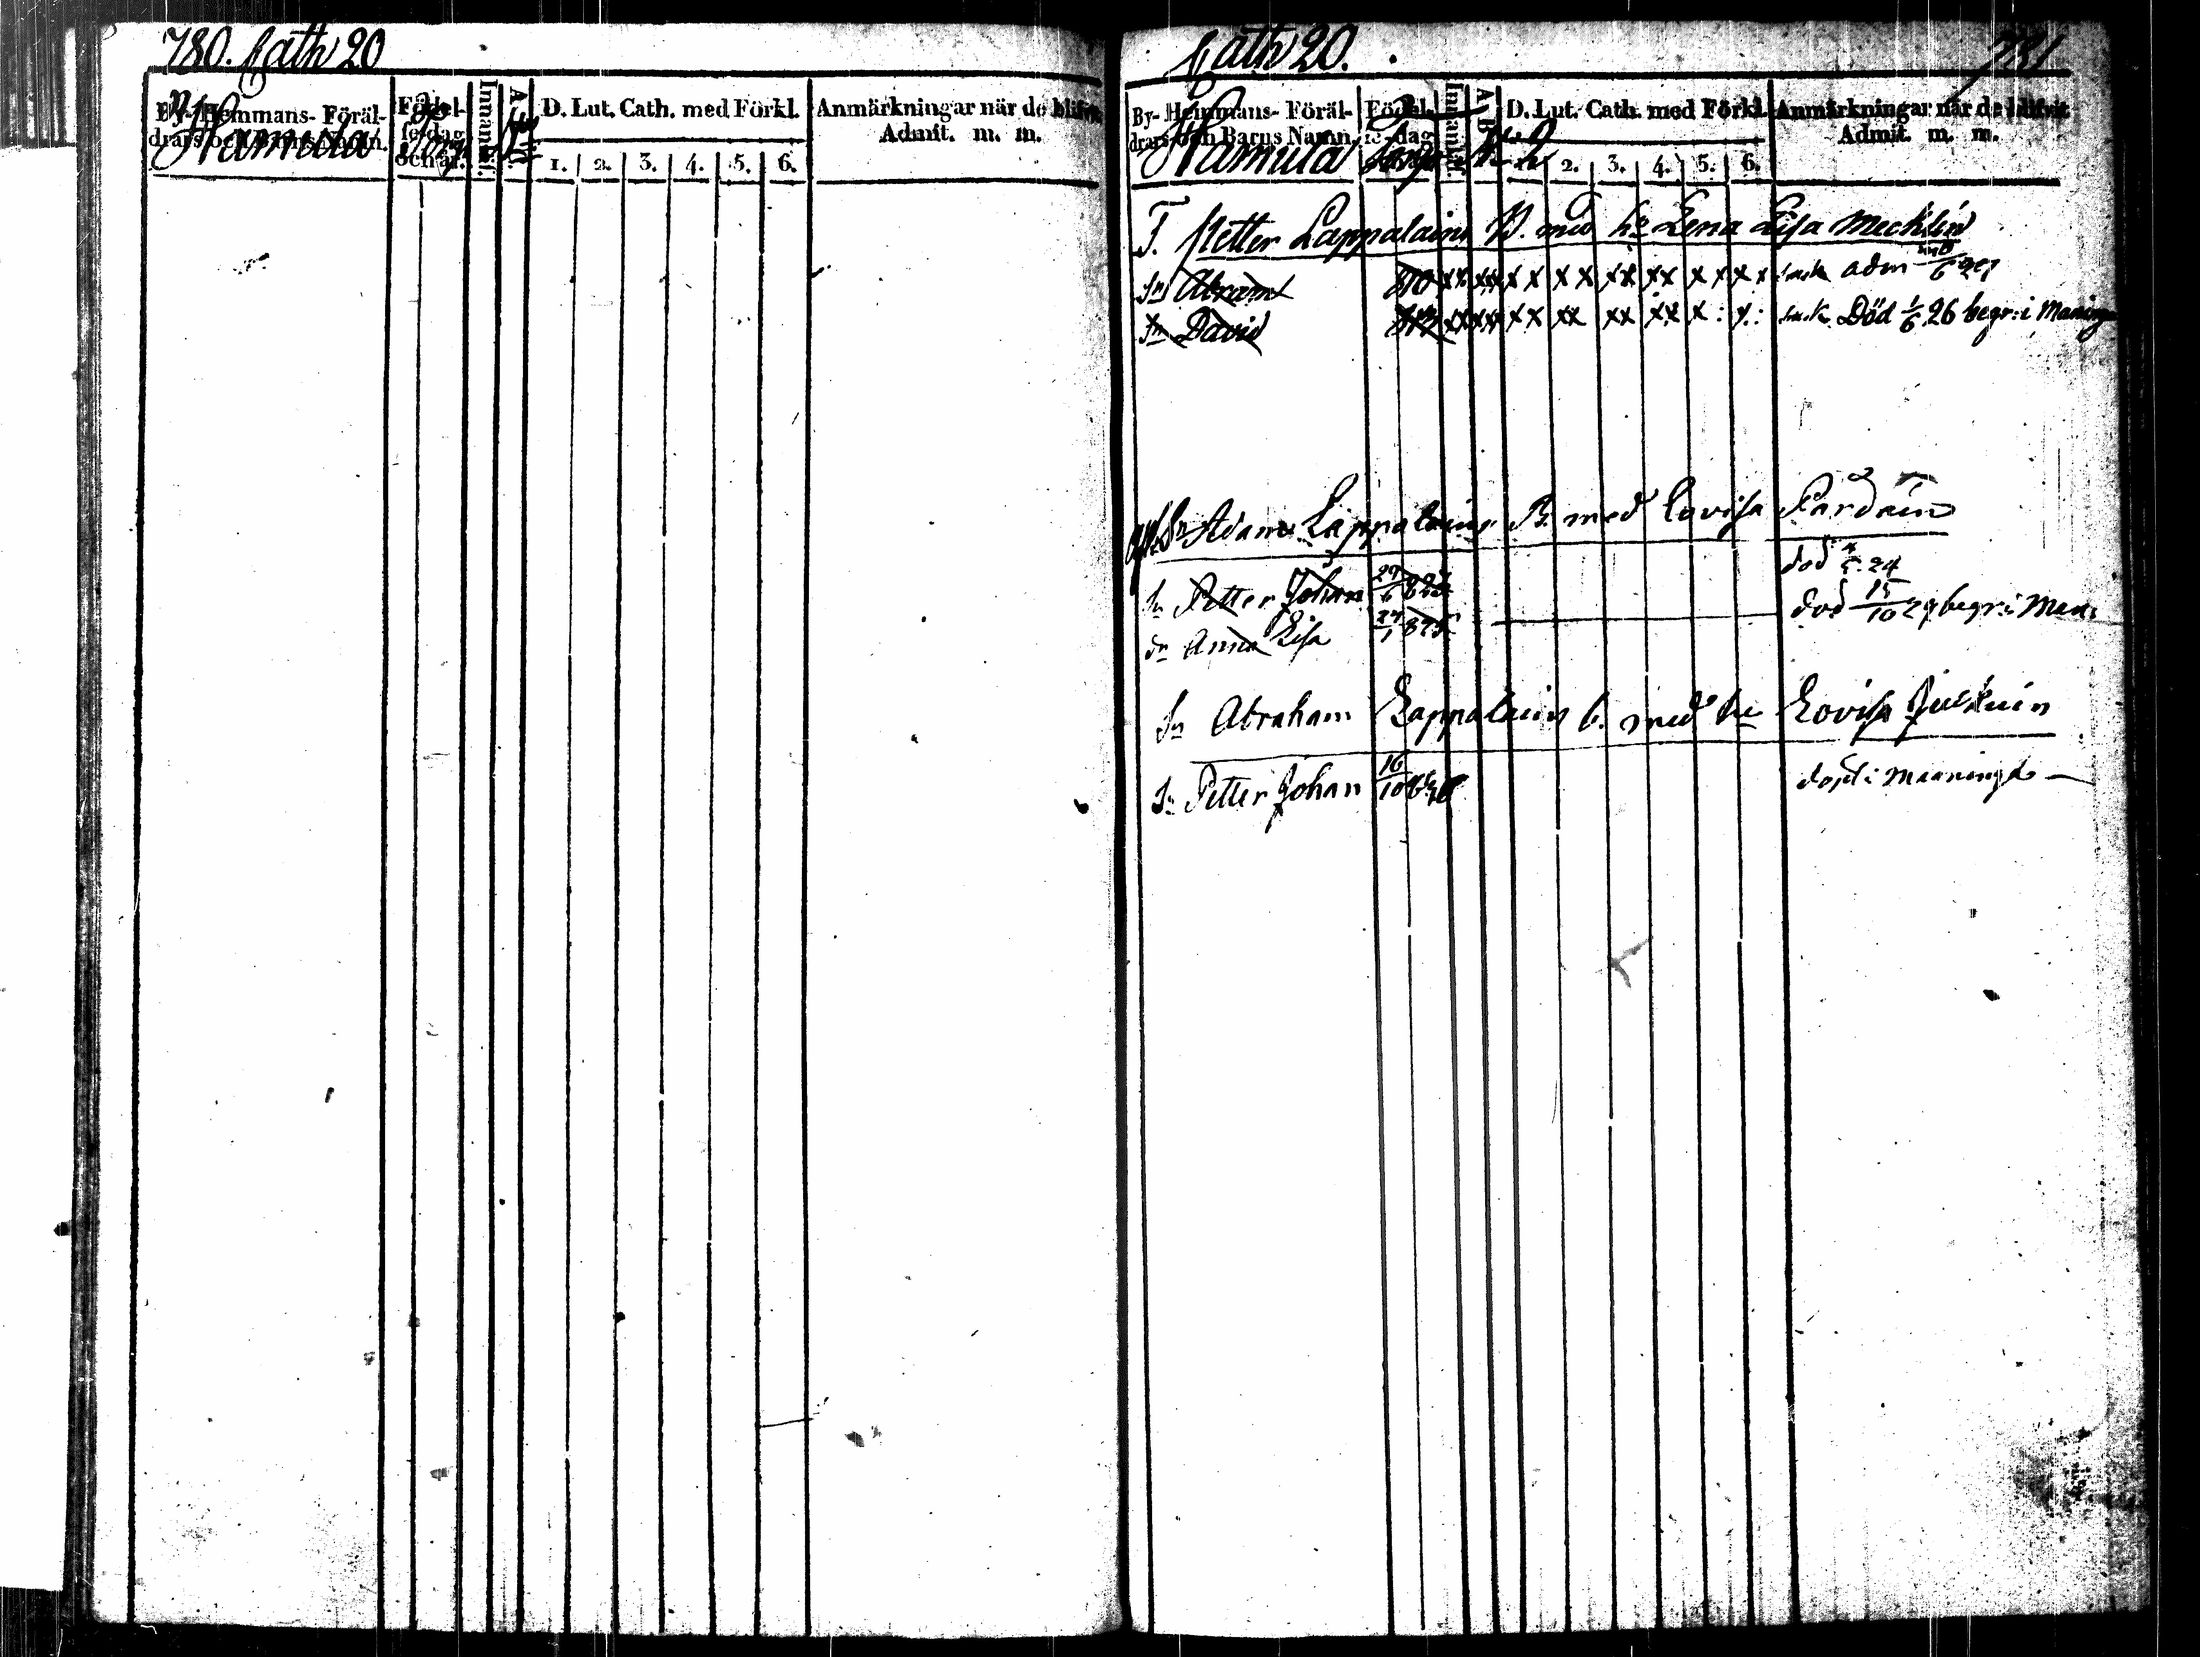 780. Cath 20
By- Hemmans- Föräl-
drars och Barns Namn.
Hamula
Födel-
sedag
och år.
Innanläs.
A. B.
D. Lut. Cath. med Förkl.
1. 2. 3. 4. 5. 6.
Anmärkningar när de blifvit
Admit. m. m.
Cath 20.
781
By- Hemmans- Föräl-
drars och Barns Namn.
Hamula
Födel-
se-dag
Innanläs.
A. B.
N: 2
D. Lut. Cath. med Förkl.
2. 3. 4. 5. 6.
Anmärkningar när de blifvit
Admit. m. m.
T. Petter Lappalain B. med h: Lena Lisa Mecklin
Sn Abram 810 xx xx xx xx xx xx xx xx adm 6
Sn David xx xx xx xx xx xx x: x: Död 1/6 26 begr: i Maning
Sn Adam Lappalain B. med Lovisa Pardain
död 24
Sn Petter Johan 29/6
död 15/10 29 begr: i Man:
dr Anna Lisa 24/1 825
Sn Abraham Lappalain b. med hu Lovisa
Sn Petter Johan 16/10
döpt i Maaninga